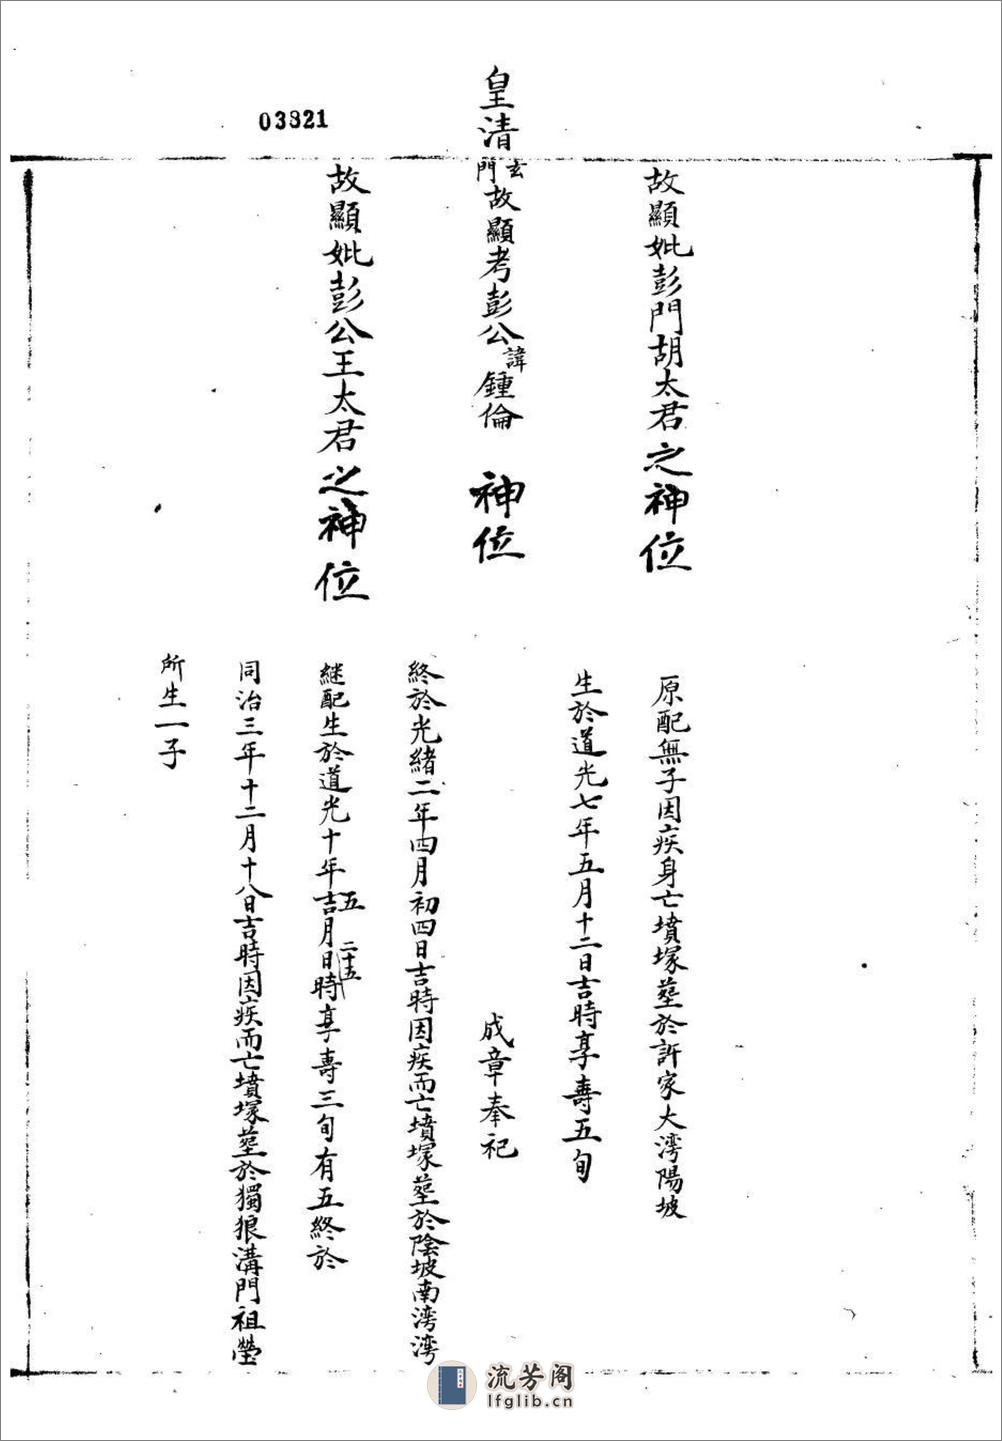 03821
故顯妣彭門胡太君之神位
原配無子因疾身亡墳塚塋於許家大灣陽坡
生於道光七年五月十二日吉時享壽五旬
皇清玄門故顯考彭公諱鍾倫 神位
成章奉祀
終於光緒二年四月初四日吉時因疾而亡墳塚塋於陰坡南灣灣
故顯妣彭公王太君之神位
継配生於道光十年吉五月二十五日時享壽三旬有五終於
同治三年十二月十八日吉時因疾而亡墳塚塋於獨狼溝門祖塋
所生一子
流芳阁
lfglib.cn